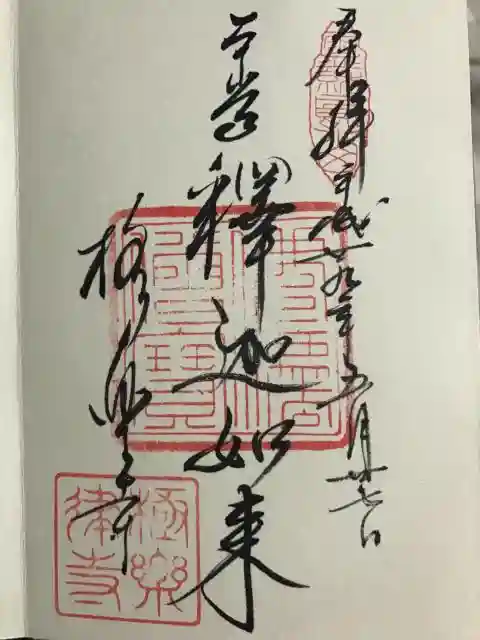 奉拝 平成廿九年五月廿七日
本尊 釋迦如来
極楽寺
極樂
律寺